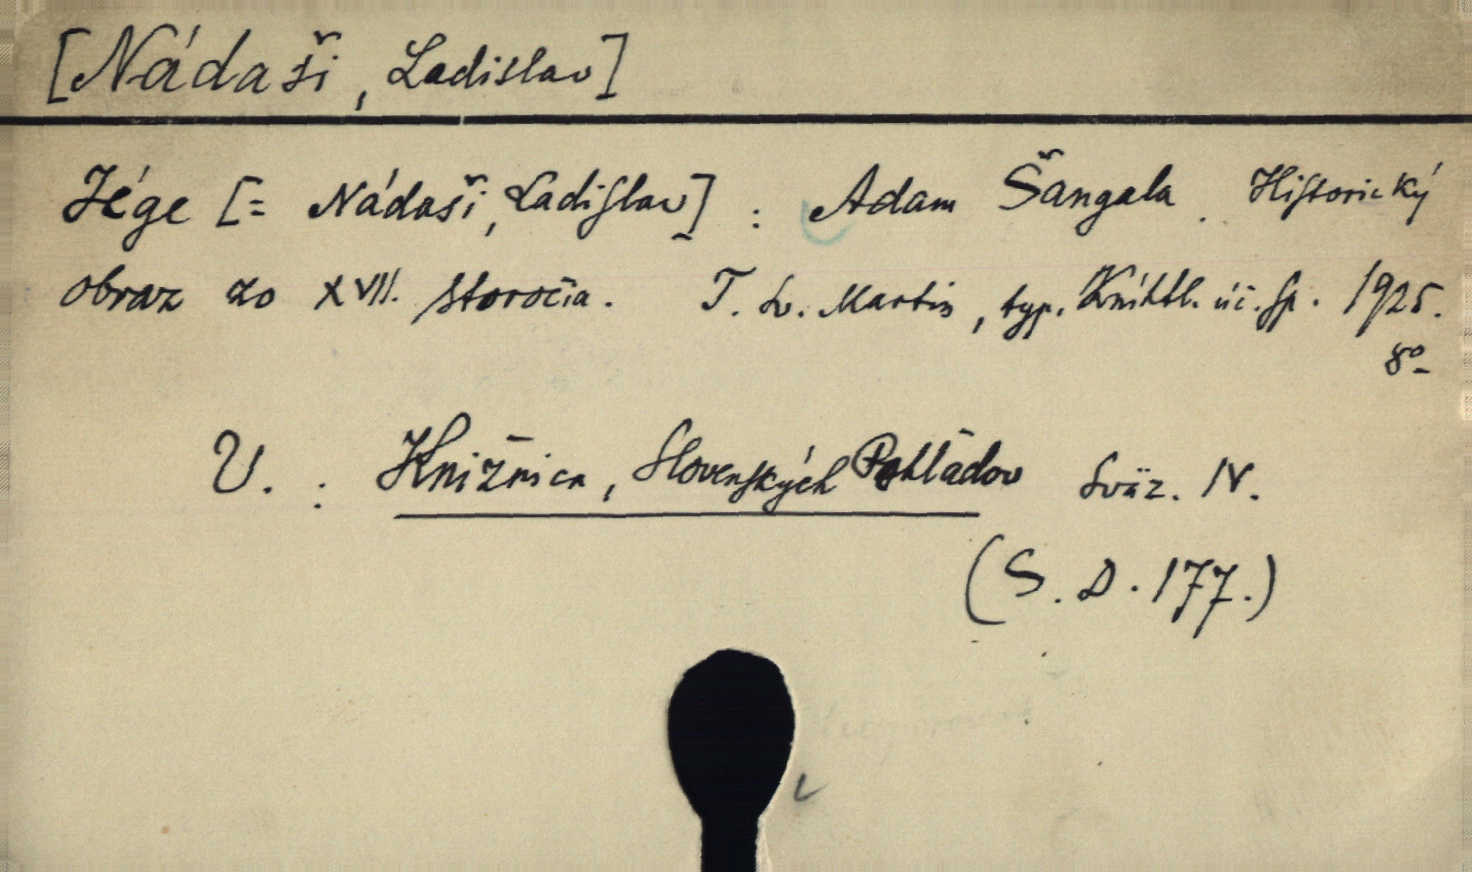 [Nádaši, Ladislav]
Jége [= Nádaši, Ladislav] : Adam Šangala. Historický
obraz zo XVII. storočia. T. Sv. Martin, typ. Kníhtl. úč. sp. 1925.
8°
U. : Knižnica, Slovenských Pohľadov Sväz. IV.
(S. D. 177.)